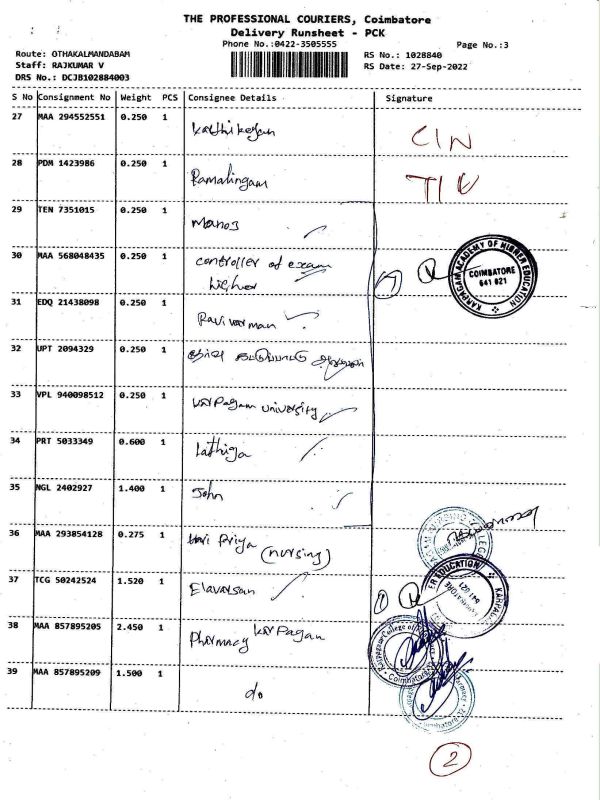 THE PROFESSIONAL COURIERS, Coimbatore
Delivery Runsheet - PCK
Phone No.:0422-3505555
Page No.:3
Route: OTHAKALMANDABAM
Staff: RAJKUMAR V
DRS No.: DCJB102884003
RS No.: 1028840
RS Date: 27-Sep-2022
S No Consignment No Weight PCS Consignee Details Signature
27 MAA 294552551 0.250 1 Karthikeyan
28 PDM 1423986 0.250 1 Ramalingam
29 TEN 7351015 0.250 1 Manoj
30 MAA 568048435 0.250 1 controller of exam
higher
KARPAGAM ACADEMY OF HIGHER EDUCATION
COIMBATORE
641 021
31 EDQ 21438098 0.250 1 Ravivarman
32 UPT 2094329 0.250 1 தேர்வு கட்டுப்பாட்டு
33 VPL 940098512 0.250 1 Karpagam university
34 PRT 5033349 0.600 1 Lathiga
35 NGL 2402927 1.400 1 John
36 MAA 293854128 0.275 1 Hari Priya
(nursing)
37 TCG 50242524 1.520 1 Elavarsan
ER EDUCATION
COIMBATORE
641 021
38 MAA 857895205 2.450 1 Pharmacy Karpagam
Karpagam College of
Coimbatore
39 MAA 857895209 1.500 1 do
2